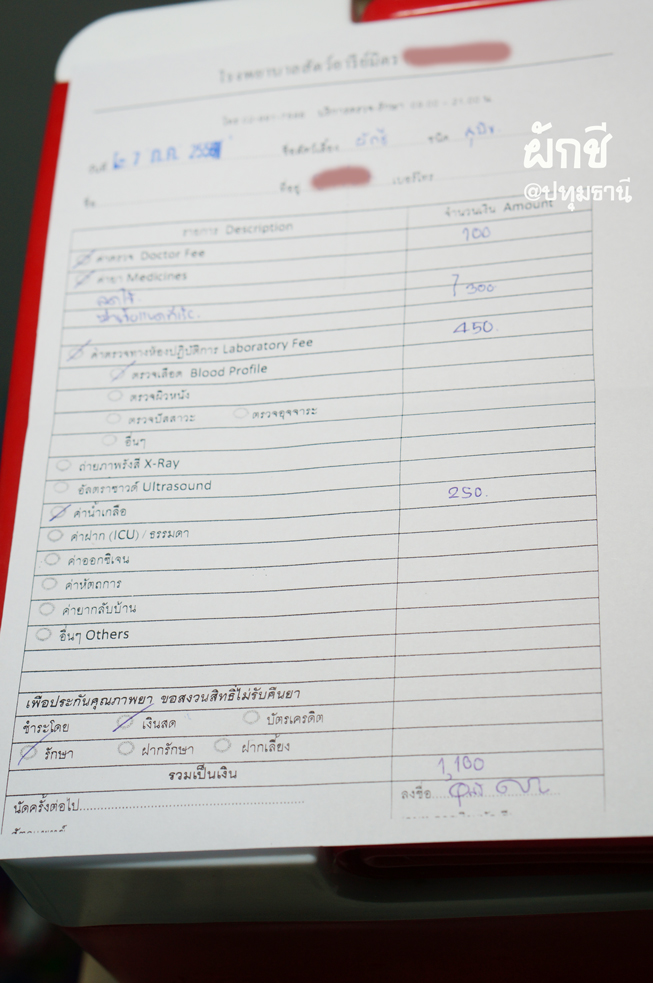 โรงพยาบาลสัตว์อารีย์มิตร
บริการตรวจ-รักษา 09.00 - 21.00 น.
วันที่ 27 ก.ค. 255 ชื่อสัตว์เลี้ยง ผักชี ชนิด สุนัข
ชื่อ ที่อยู่ เบอร์โทร
ผักชี
@ปทุมธานี
รายการ Description จำนวนเงิน Amount
ค่าตรวจ Doctor Fee 100
ค่ายา Medicines
ลดไข้ 300
450.
ค่าตรวจทางห้องปฏิบัติการ Laboratory Fee
ตรวจเลือด Blood Profile
ตรวจผิวหนัง
ตรวจปัสสาวะ ตรวจอุจจาระ
อื่นๆ
ถ่ายภาพรังสี X-Ray
อัลตราซาวด์ Ultrasound
ค่าน้ำเกลือ 250.
ค่าฝาก (ICU) / ธรรมดา
ค่าออกซิเจน
ค่าหัตถการ
ค่ายากลับบ้าน
อื่นๆ Others
เพื่อประกันคุณภาพยา ขอสงวนสิทธิ์ไม่รับคืนยา
ชำระโดย เงินสด บัตรเครดิต
รักษา ฝากรักษา ฝากเลี้ยง
รวมเป็นเงิน 1,100
นัดครั้งต่อไป.......... ลงชื่อ